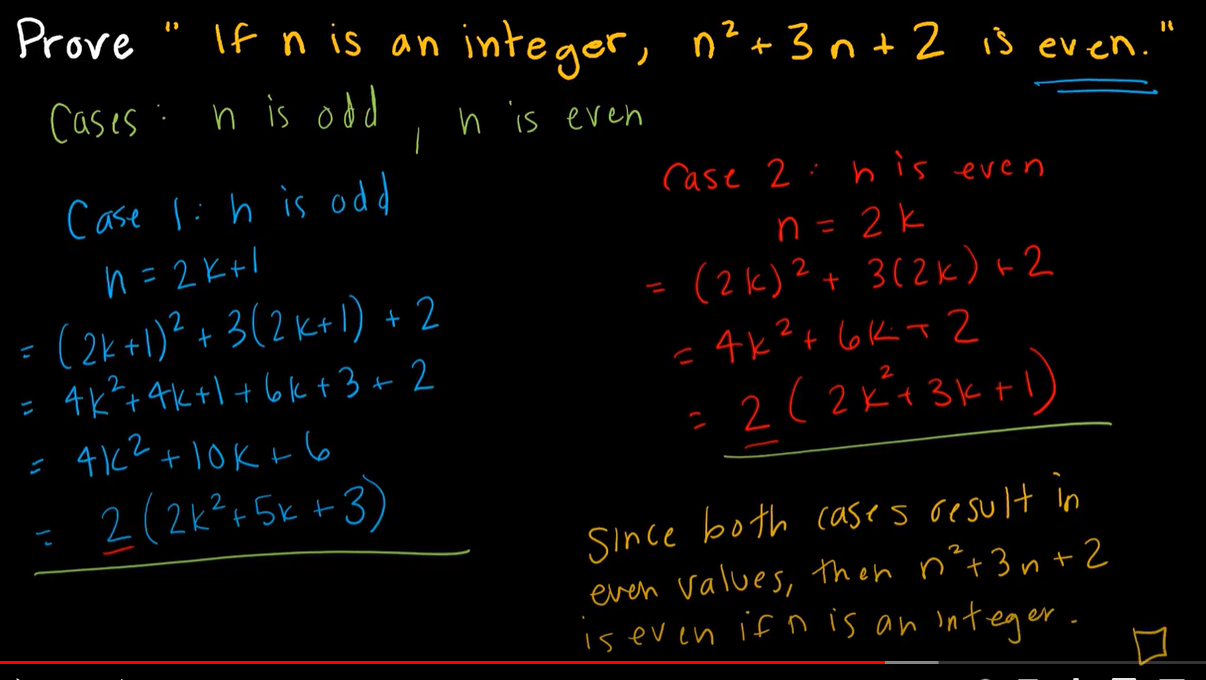 Prove "If n is an integer, n² + 3n + 2 is even."
Cases: n is odd, n is even
Case 1: n is odd
n = 2k+1
= (2k+1)² + 3(2k+1) + 2
= 4k²+4k+1+6k+3+2
= 4k²+10k+6
= 2(2k²+5k+3)
Case 2: n is even
n = 2k
= (2k)² + 3(2k) + 2
= 4k² + 6k + 2
= 2(2k²+3k+1)
Since both cases result in
even values, then n²+3n+2
is even if n is an integer.